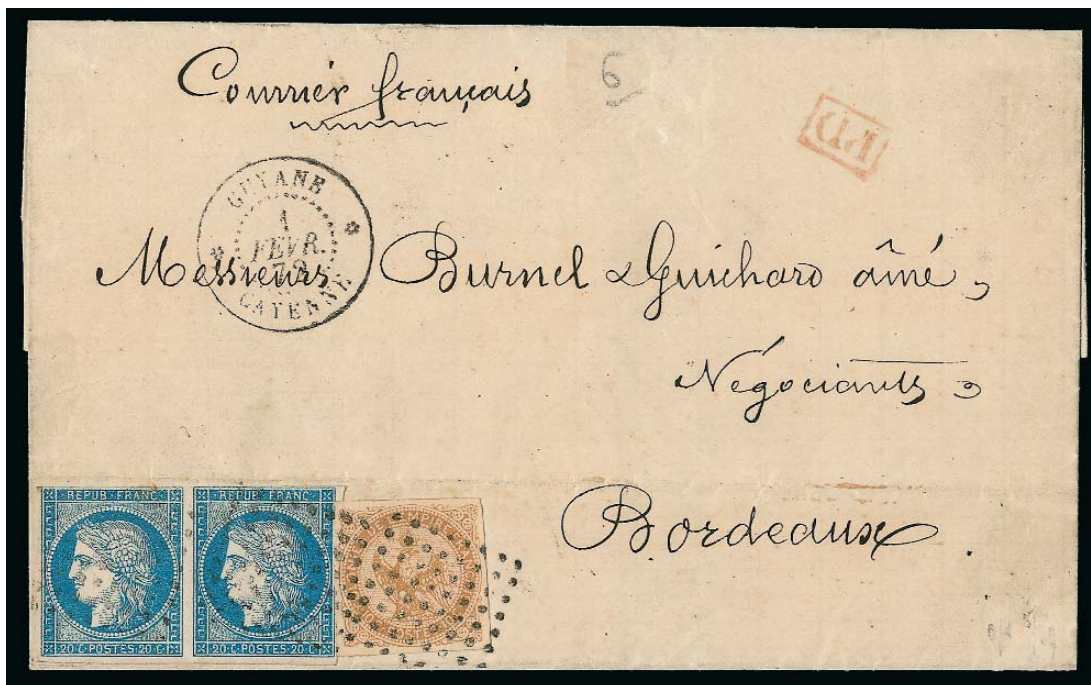 Courrier français
6
PD
GUYANE
1
FEVR.
72
CAYENNE
Messieurs Burnel & Guichard aîné,
Négociants,
Bordeaux.
REPUB·FRANC·
20·C·POSTES·20·C·
REPUB·FRANC·
20·C·POSTES·20·C·